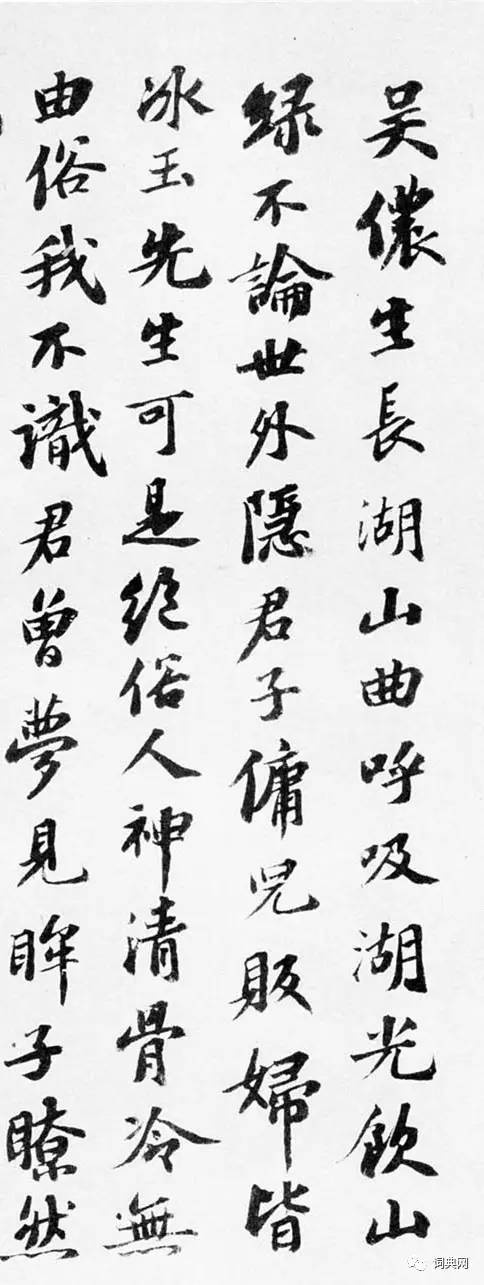 吴儂生長湖山曲呼吸湖光飲山
緑不論世外隱君子傭兒販婦皆
冰玉先生可是絕俗人神清骨冷無
由俗我不識君曾夢見眸子瞭然
词典网